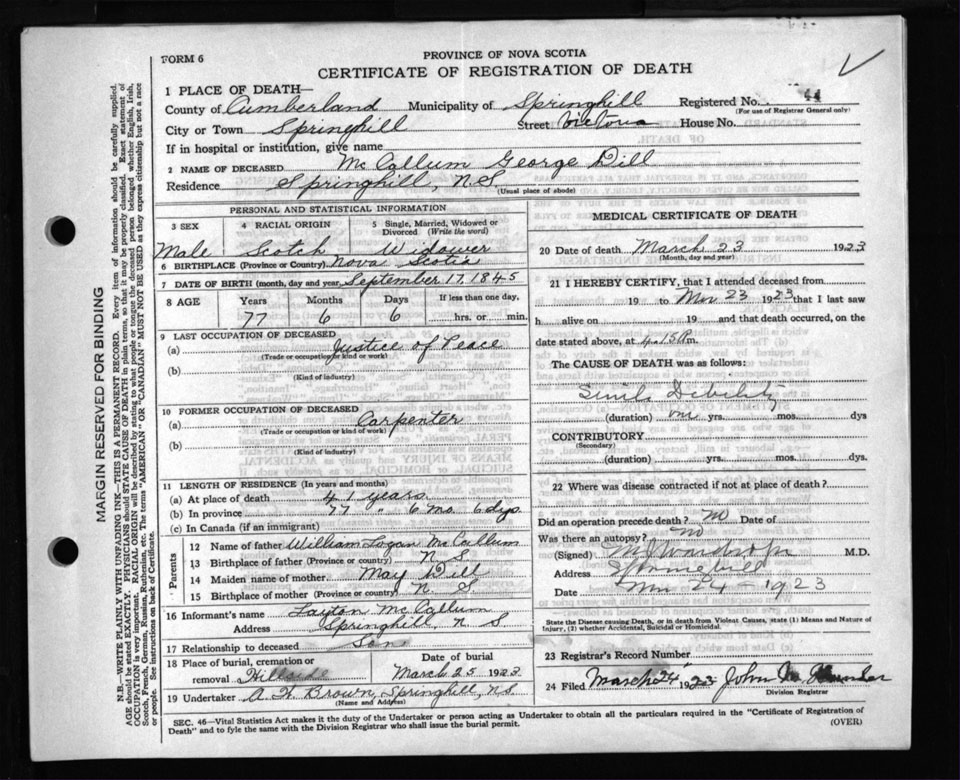 FORM 6
PROVINCE OF NOVA SCOTIA
CERTIFICATE OF REGISTRATION OF DEATH
1 PLACE OF DEATH—
County of Cumberland Municipality of Springhill Registered No. 44
(For use of Registrar General only)
City or Town Springhill Street Victoria House No.
If in hospital or institution, give name
2 NAME OF DECEASED McCallum George Dill
Residence Springhill, N.S. (Usual place of abode)
PERSONAL AND STATISTICAL INFORMATION
3 SEX 4 RACIAL ORIGIN 5 Single, Married, Widowed or Divorced (Write the word)
Male Scotch Widower
6 BIRTHPLACE (Province or Country) Nova Scotia
7 DATE OF BIRTH (month, day and year) September 17, 1845
8 AGE Years Months Days If less than one day,
77 6 6 hrs. or min.
9 LAST OCCUPATION OF DECEASED
(a) Justice of Peace
(Trade or occupation or kind of work)
(b)
(Kind of industry)
10 FORMER OCCUPATION OF DECEASED
(a) Carpenter
(Trade or occupation or kind of work)
(b)
(Kind of industry)
11 LENGTH OF RESIDENCE (In years and months)
(a) At place of death 41 years
(b) In province 77 " 6 mo. 6 dys
(c) In Canada (if an immigrant)
Parents
12 Name of father William Logan McCallum
13 Birthplace of father (Province or country) N S
14 Maiden name of mother May Dill
15 Birthplace of mother (Province or country) N S
16 Informant's name Layton McCallum
Address Springhill, N S
17 Relationship to deceased Son
18 Place of burial, cremation or removal Hillside Date of burial March 25 1923
19 Undertaker A. H. Brown, Springhill, N.S.
(Name and Address)
MEDICAL CERTIFICATE OF DEATH
20 Date of death March 23 1923
(Month, day and year)
21 I HEREBY CERTIFY, that I attended deceased from
19 to Mar 23 1923 that I last saw
h alive on 19 and that death occurred, on the
date stated above, at m.
The CAUSE OF DEATH was as follows:
Debility
(duration) yrs. mos. dys
CONTRIBUTORY
(Secondary)
(duration) yrs. mos. dys.
22 Where was disease contracted if not at place of death?
Did an operation precede death? no Date of
Was there an autopsy? no
(Signed) M.D.
Address Springhill
Date Mar 24 - 1923
State the Disease causing Death, or in death from Violent Causes, state (1) Means and Nature of Injury, (2) whether Accidental, Suicidal or Homicidal.
23 Registrar's Record Number
24 Filed March 24 1923 John
Division Registrar
SEC. 46—Vital Statistics Act makes it the duty of the Undertaker or person acting as Undertaker to obtain all the particulars required in the "Certificate of Registration of
Death" and to fyle the same with the Division Registrar who shall issue the burial permit. (OVER)
MARGIN RESERVED FOR BINDING
N.B.—WRITE PLAINLY WITH UNFADING INK—THIS IS A PERMANENT RECORD. Every item of information should be carefully supplied.
AGE should be stated EXACTLY. PHYSICIANS should STATE CAUSE OF DEATH in plain terms, so that it may be properly classified. Exact statement of
OCCUPATION is very important. RACIAL ORIGIN will be described by stating to what people or tongue the deceased person belonged whether English, Irish,
Scotch, French, German, Russian, Ruthenian, etc. The terms "AMERICAN" OR "CANADIAN" MUST NOT BE USED as they express citizenship but not a race
or people. See instructions on back of Certificate.